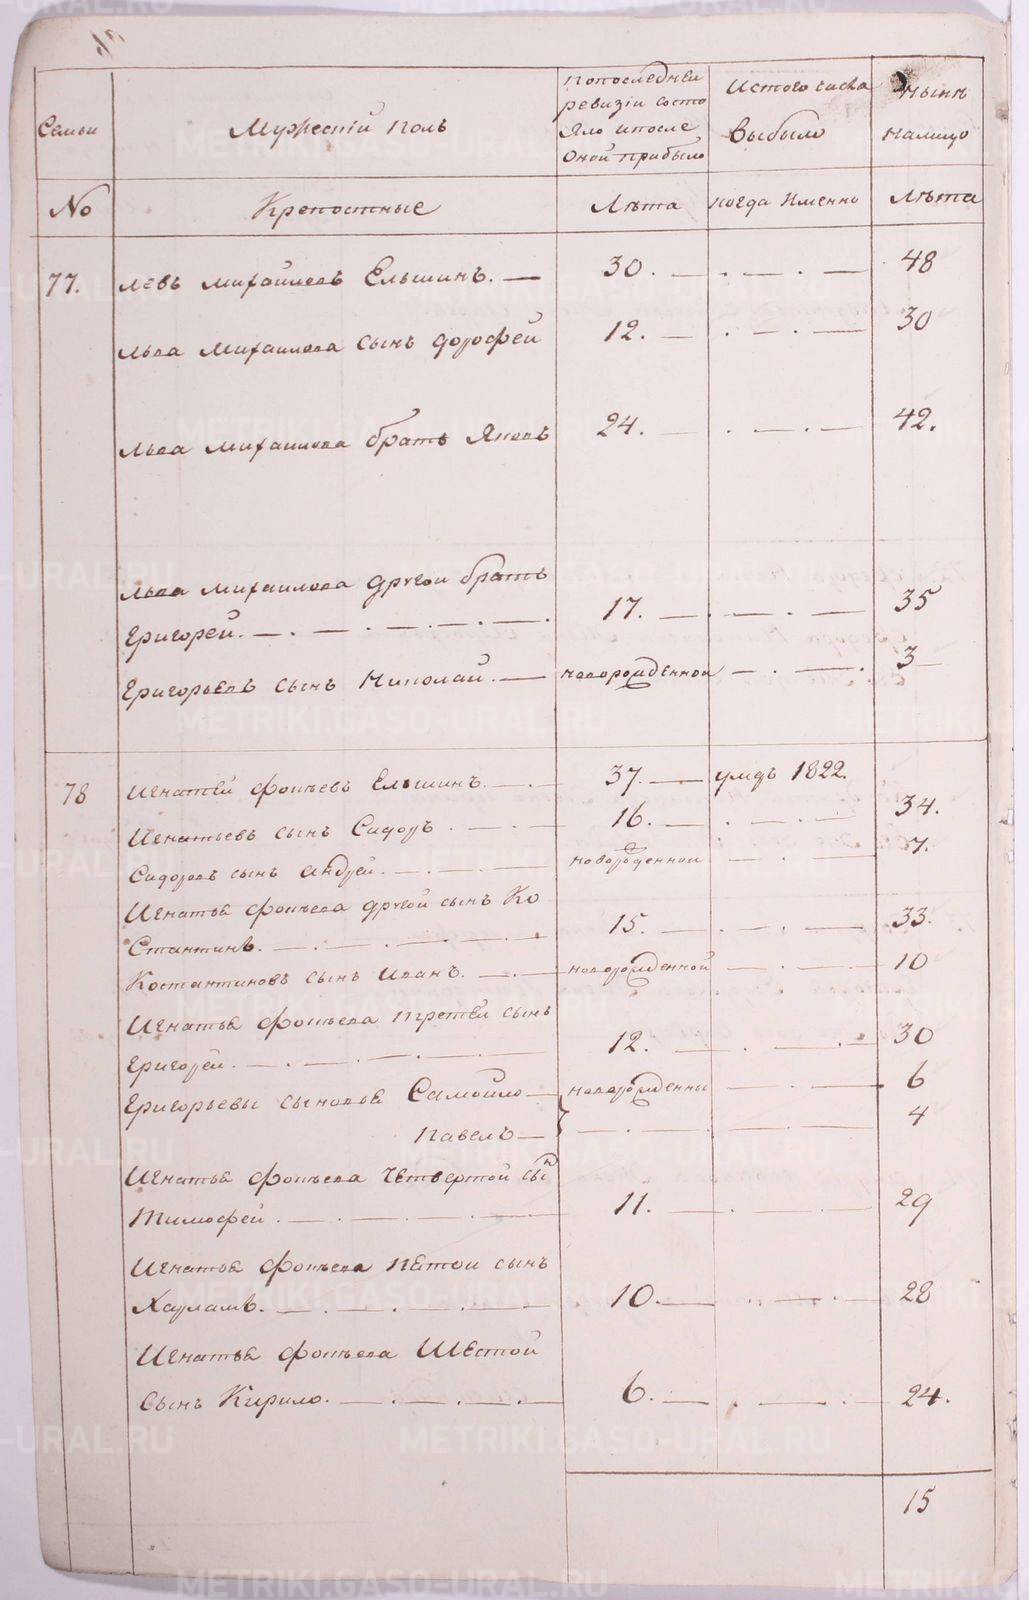 Семьи
Мужескій полъ
Попоследней
ревизіи состо
Яло ипосле
Оной прибыло
Истого числа
Выбыло
Нынѣ
Налицо
No
Крепостные
Лѣта
когда Именно
Лѣта
77. Левъ Михайловъ Ельшинъ. — 30. — . — . — 48
Льва Михаилова сынъ дорофей 12. — . — . — 30
Льва Михаилова братъ Яковъ 24. — . — . — 42.
Льва Михаилова другой братъ
Григорей. — . — . — . — . 17. — . — . — 35
Григорьевъ сынъ Николай. — новорожденной — . — . 3
78 Игнатей фокѣевъ Ельшинъ. — . — 37. — умеръ 1822.
Игнатьевъ сынъ Сидоръ . — . — 16. — . — . — 34.
Сидоровъ сынъ андрей. — . — . — новорожденной — . — 7.
Игнатья фокѣева другой сынъ Ко
Стантинъ. — . — . — . — 15. — . — . — 33.
Костантиновъ сынъ Иванъ. — . — новорожденной — . — 10
Игнатья фокѣева третей сынъ
Григорей. — . — . — 12. — . — . — 30
Григорьевы сыновья Самойло — новорожденны — . — 6
Павелъ — } — . — . — 4
Игнатья фокѣева четвертой сынъ
Тимофей . — . — . — 11. — . — . — 29
Игнатья фокѣева пятой сынъ
Харламъ. — . — . — . — 10. — . — . — 28
Игнатья фокѣева Шестой
сынъ Кирило. — . — . — . — 6. — . — . — 24.
15
METRIKI.GASO-URAL.RU